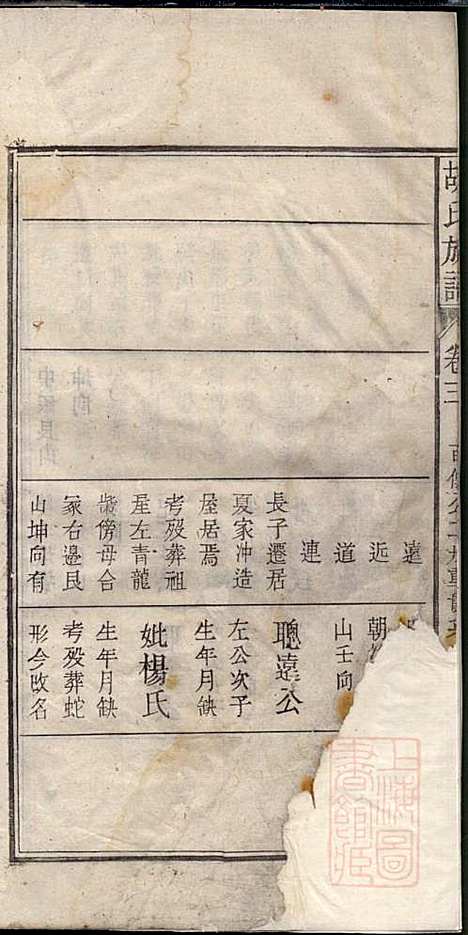 胡氏族譜
卷三
遠
近
道
連
長子遷居
夏家冲造
屋居焉
考殁葬祖
左青龍
傍母合
冢右邊艮
山坤向有
朝
山壬向
聰遠公
左公次子
生年月缺
妣楊氏
生年月缺
考殁葬蛇
形今改名
上海圖書館藏